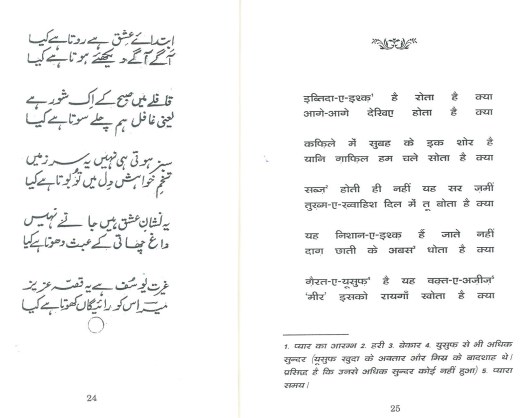 ابتدائے عشق ہے روتا ہے کیا
آگے آگے دیکھئے ہوتا ہے کیا
قافلے میں صبح کے اِک شور ہے
یعنی غافل ہم چلے سوتا ہے کیا
سبز ہوتی ہی نہیں یہ سرزمیں
تخمِ خواہش دل میں تو بوتا ہے کیا
یہ نشانِ عشق ہیں جاتے نہیں
داغ چھاتی کے عبث دھوتا ہے کیا
غیرتِ یوسُف ہے یہ قصّہ عزیز
میرؔ اس کو رائیگاں کھوتا ہے کیا
24
इब्तिदा-ए-इश्क़¹ है रोता है क्या
आगे-आगे देखिए होता है क्या
क़ाफ़िले में सुबह के इक शोर है
यानि ग़ाफ़िल हम चले सोता है क्या
सब्ज़² होती ही नहीं यह सर ज़मीं
तुख़्म-ए-ख़्वाहिश दिल में तू बोता है क्या
यह निशान-ए-इश्क़ हैं जाते नहीं
दाग़ छाती के अबस³ धोता है क्या
ग़ैरत-ए-यूसुफ़⁴ है यह वक़्त-ए-अज़ीज़⁵
'मीर' इसको रायगाँ खोता है क्या
1. प्यार का आरम्भ 2. हरी 3. बेकार 4. युसुफ़ से भी अधिक
सुन्दर (यूसुफ़ ख़ुदा के अवतार और मिस्र के बादशाह थे।
प्रसिद्ध है कि उनसे अधिक सुन्दर कोई नहीं हुआ) 5. प्यारा
समय।
25